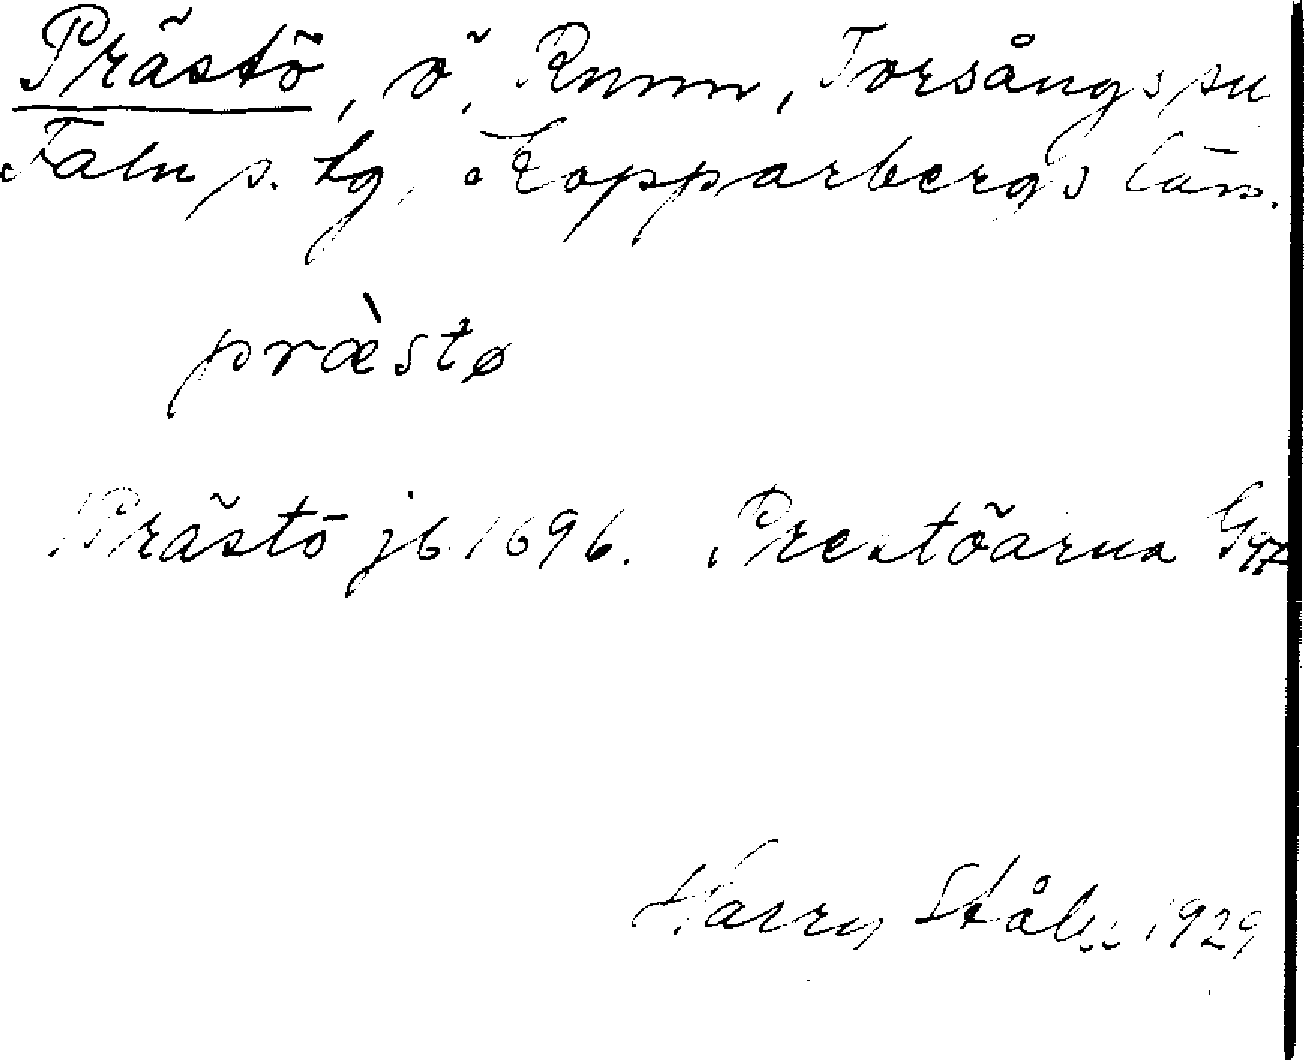 Prästö, ö, Runn, Torsångs sn
Falu s. tg, Kopparbergs län.
præ̀stø
Prästö jb 1696. Prestöarna G
Harry Ståhl 1929